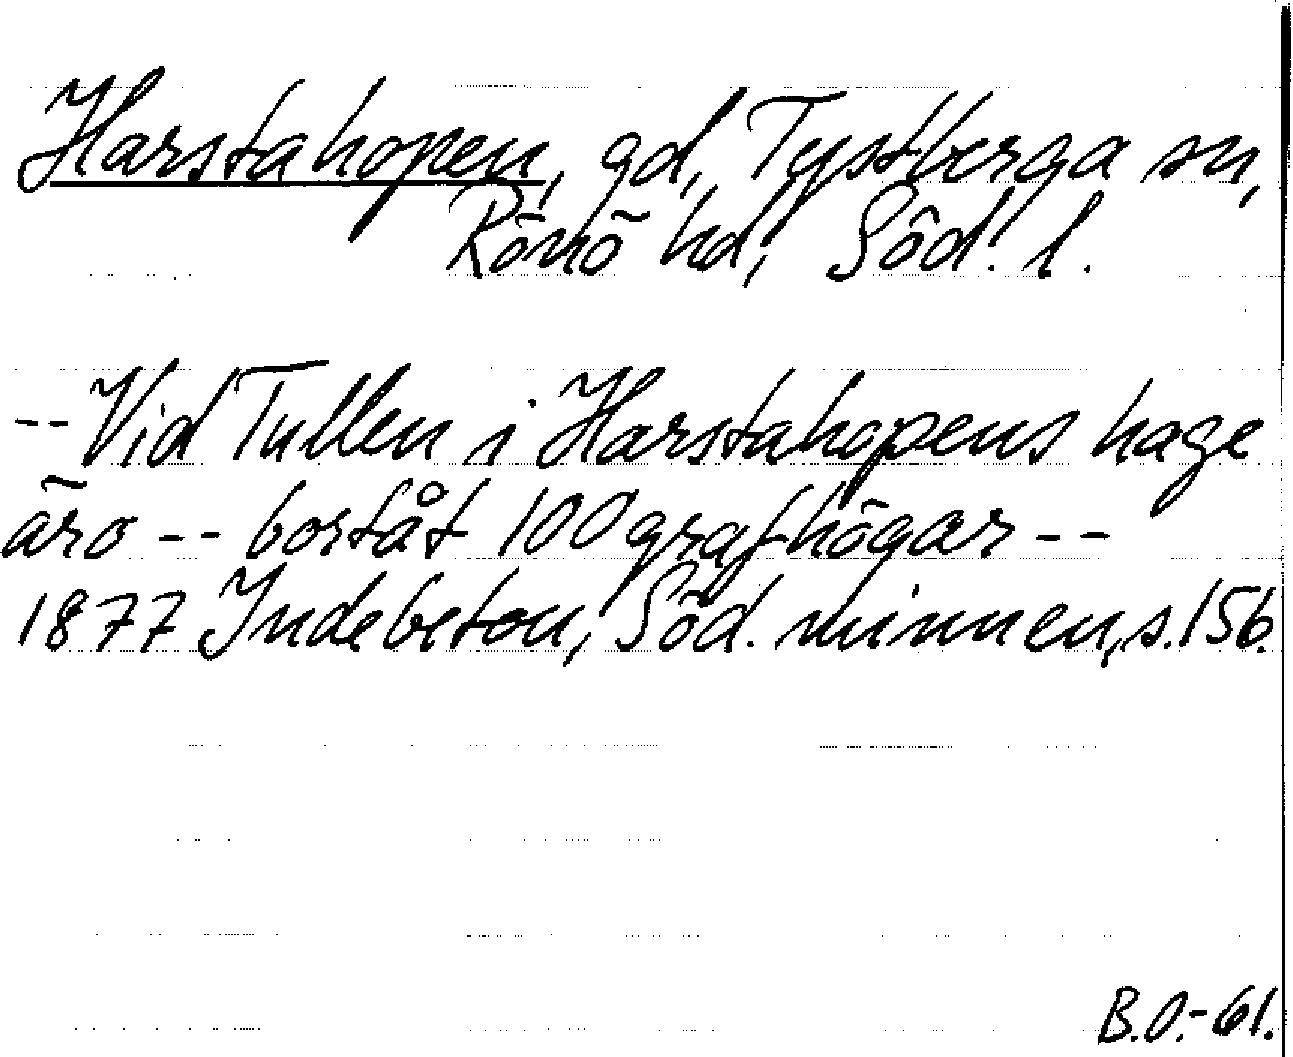 Harstahopen, gd, Tystberga sn,
Rönö hd, Söd. l.
-- Vid Tullen i Harstahopens hage
äro -- bortåt 100 grafhögar --
1877 Indebetou, Söd. minnen, s. 156.
B.O.-61.